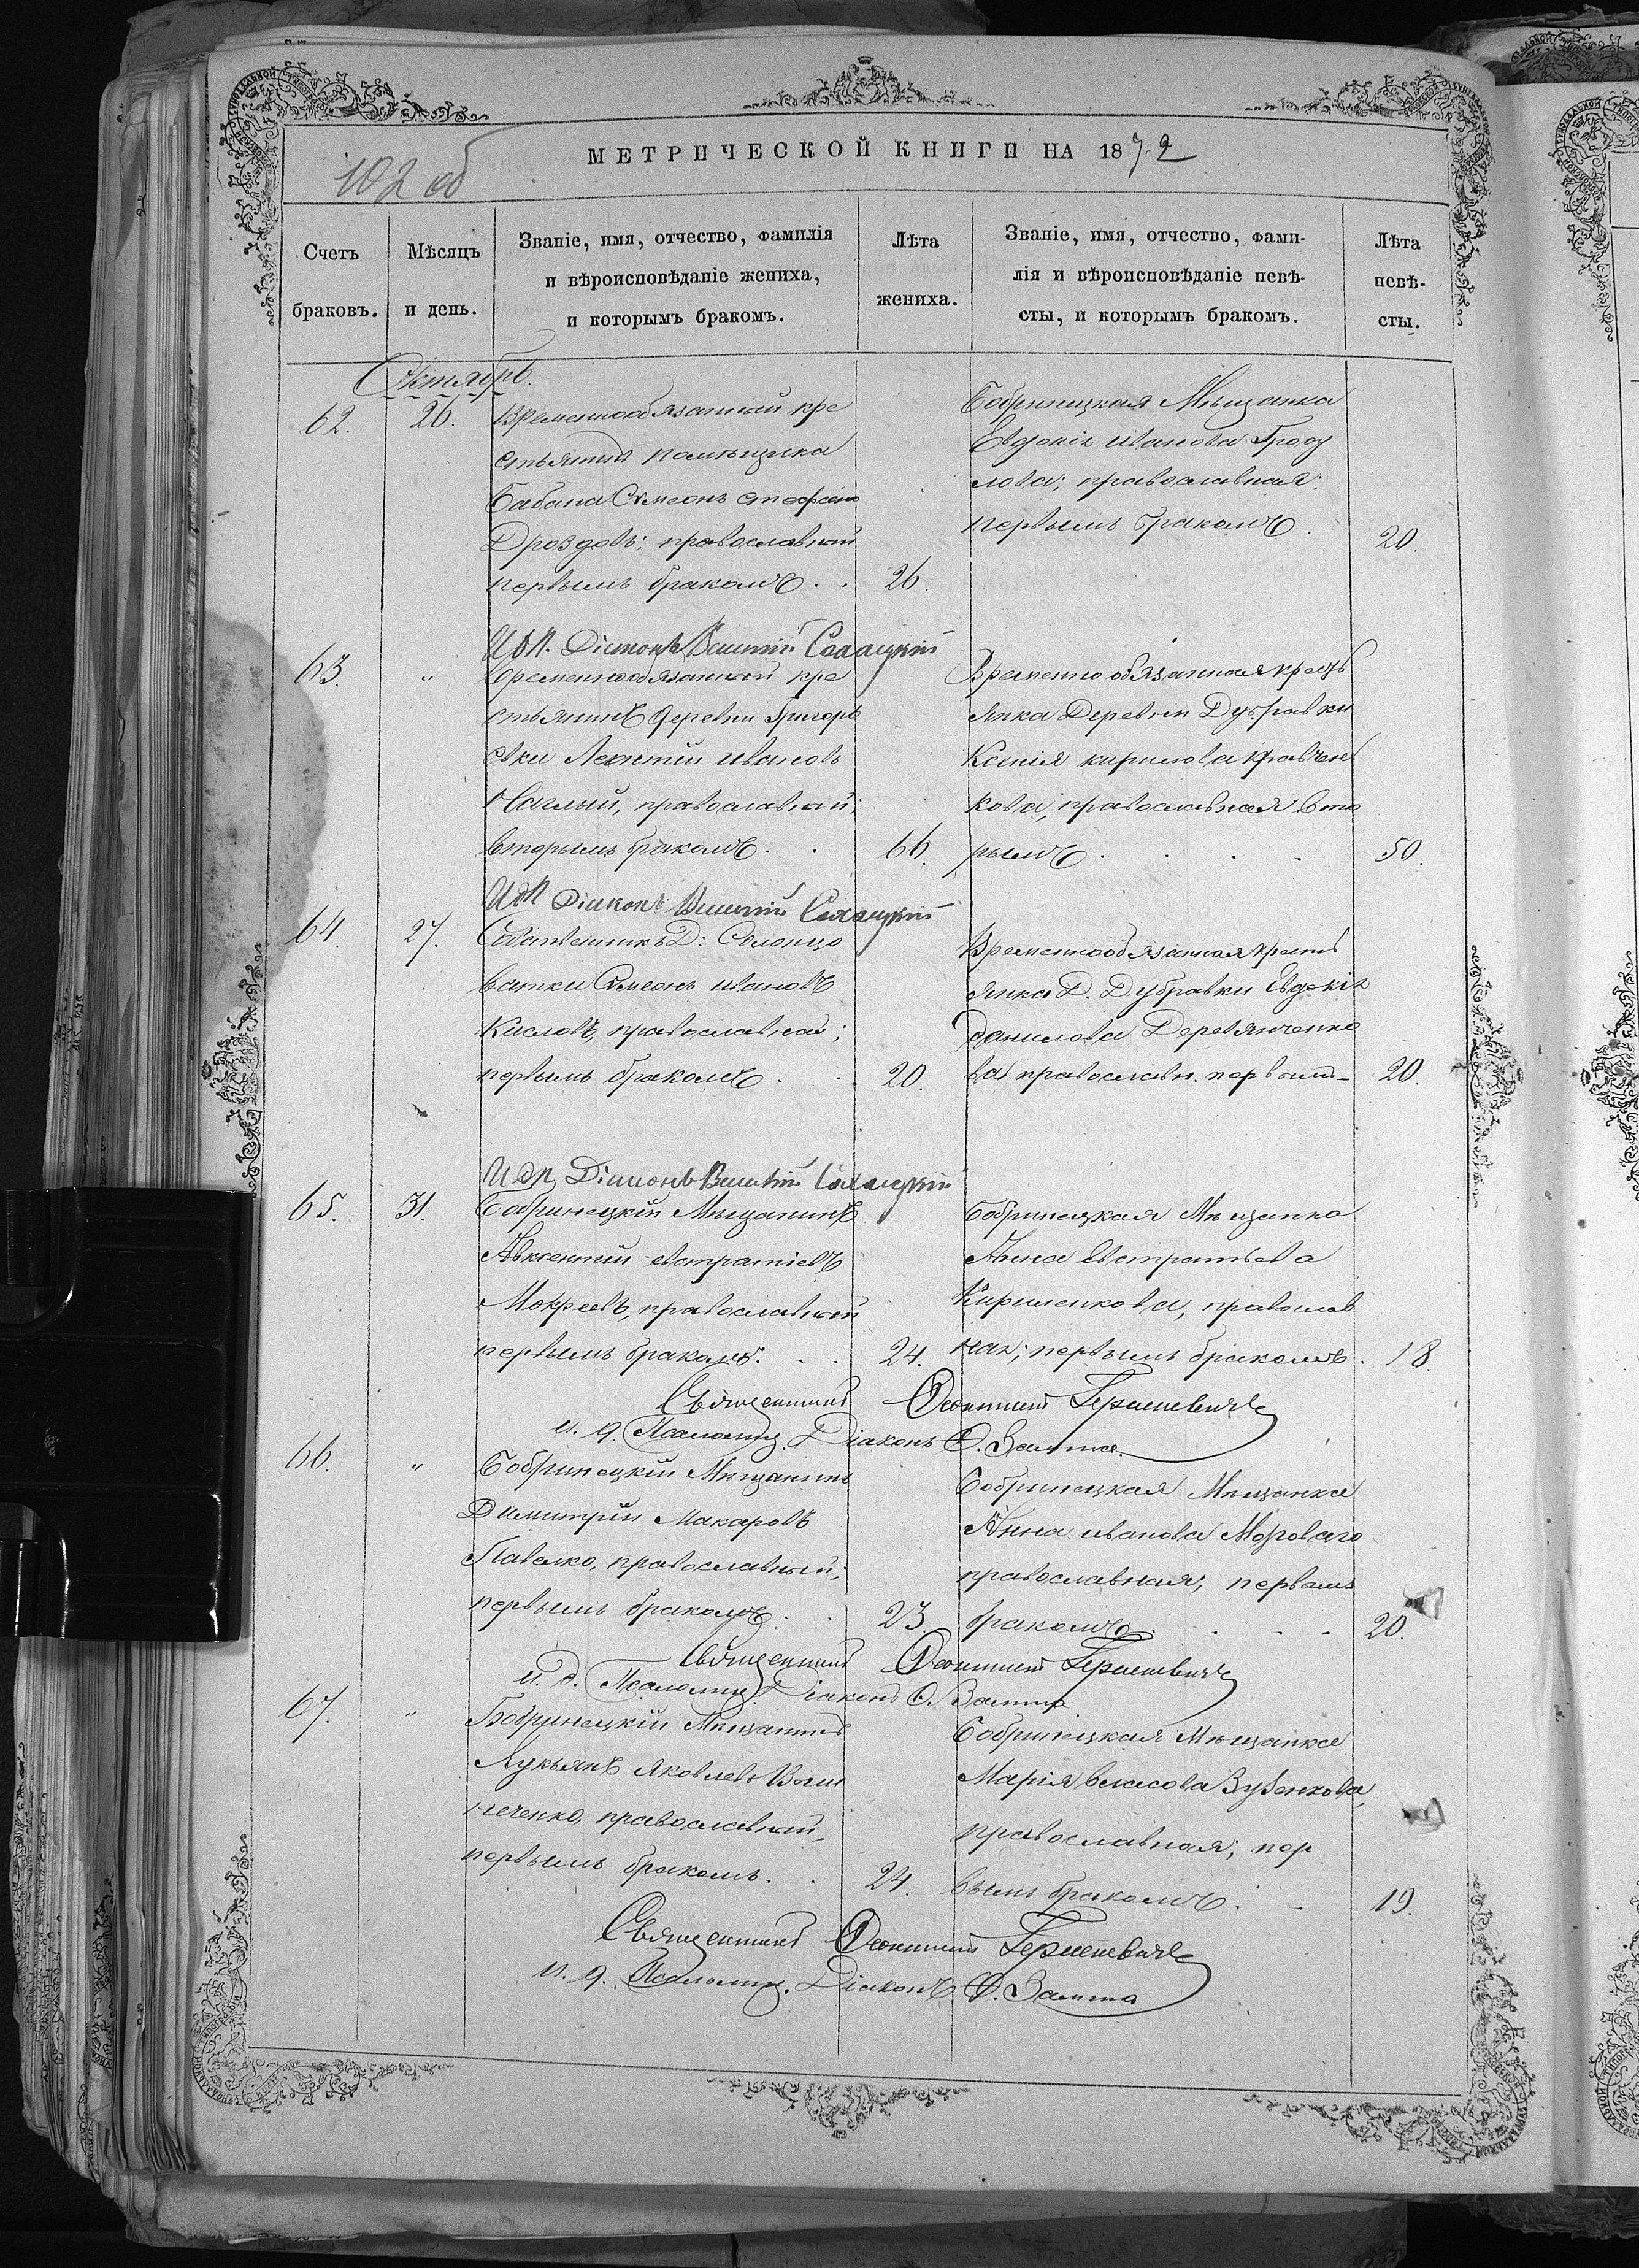 МЕТРИЧЕСКОЙ КНИГИ НА 1872
102 об
Счетъ
браковъ.
Мѣсяцъ
и день.
Званіе, имя, отчество, фамилія
и вѣроисповѣданіе жениха,
и которымъ бракомъ.
Лѣта
жениха.
Званіе, имя, отчество, фами-
лія и вѣроисповѣданіе невѣ-
сты, и которымъ бракомъ.
Лѣта
невѣ-
сты.
Октябрь.
62.
26.
Временнообязанный кре
стьянинъ помѣщика
Бабана Симеонъ Стефано
Дроздовъ; православный
первымъ бракомъ . .
26.
Бобринецкая Мѣщанка
Евдокія Иванова
лова; православная;
первымъ бракомъ .
20.
И д П. Діаконъ
63.
"
Временнообязанный кре
стьянинъ деревни Григорь
евки Леонтій Ивановъ
Наглый, православный;
вторымъ бракомъ . .
66.
Временно обязанная кресть
янка Деревни Дубравки
Ксенія Кирилова Кравчен
кова, православная вто
рымъ . . . .
50.
И д П Діаконъ
64.
27.
Д: Солонцо
ватки Симеонъ Ивановъ
Кисловъ, православный;
первымъ бракомъ . .
20.
Временнообязанная крестъ
янка Д. Дубравки Евдокія
Данилова Деревянченко
ва православн. первымъ
20.
И д П Діаконъ
65.
31.
Бобринецкій Мѣщанинъ
Авксентій Евстратіевъ
Мокреевъ, православный
первымъ бракомъ. . .
24.
Бобринецкая Мѣщанка
Анна Евстратьева
Кириленкова, православ
ная; первымъ бракомъ .
18.
Священникъ Леонтій
и. д. Псаломщ. Діаконъ
66.
"
Бобринецкій Мѣщанинъ
Димитрій Макаровъ
Павелко, православный;
первымъ бракомъ . .
23.
Бобринецкая Мѣщанка
Анна Иванова
православная; первымъ
бракомъ . . . .
20.
Священникъ Леонтій
И. д. Псаломщ. Діаконъ
67.
"
Бобринецкій Мѣщанинъ
Лукьянъ Яковлевъ
православный,
первымъ бракомъ. .
24.
Бобринецкая Мѣщанка
Марія Власова Зубенкова,
православная; пер
вымъ бракомъ . .
19.
Священникъ Леонтій
и. д. Псаломщ. Діаконъ